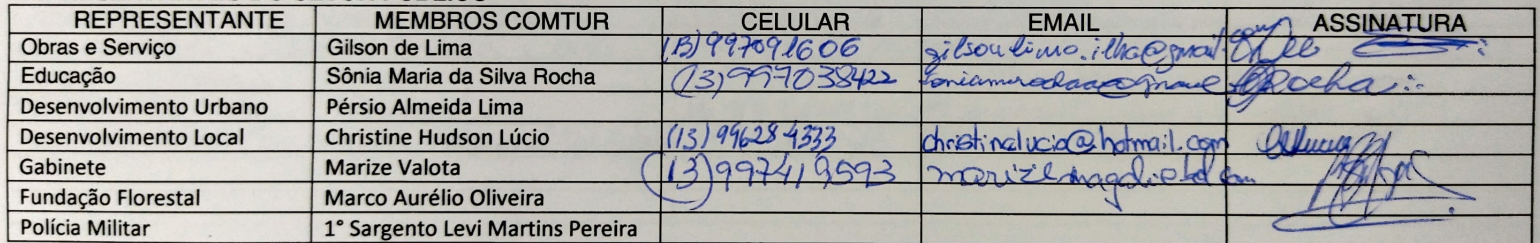 REPRESENTANTE MEMBROS COMTUR CELULAR EMAIL ASSINATURA
Obras e Serviço Gilson de Lima (13) 997091606
Educação Sônia Maria da Silva Rocha (13) 997038422 Rocha
Desenvolvimento Urbano Pérsio Almeida Lima
Desenvolvimento Local Christine Hudson Lúcio (13) 996284333 christinelucio@hotmail.com
Gabinete Marize Valota (13) 997419593
Fundação Florestal Marco Aurélio Oliveira
Polícia Militar 1° Sargento Levi Martins Pereira